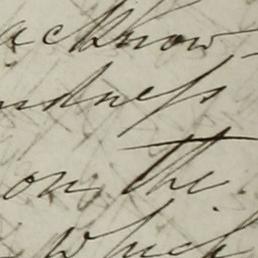 acknow
ndness
on, the
which